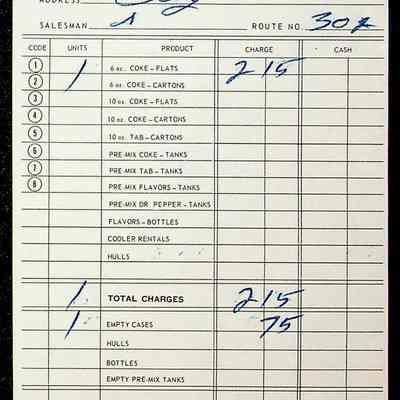 ADDRESS
SALESMAN ROUTE NO. 302
CODE UNITS PRODUCT CHARGE CASH
1 1 6 oz. COKE – FLATS 2 15
2 6 oz. COKE – CARTONS
3 10 oz. COKE – FLATS
4 10 oz. COKE – CARTONS
5 10 oz. TAB – CARTONS
6 PRE-MIX COKE – TANKS
7 PRE-MIX TAB – TANKS
8 PRE-MIX FLAVORS – TANKS
PRE-MIX DR. PEPPER – TANKS
FLAVORS – BOTTLES
COOLER RENTALS
HULLS
1 TOTAL CHARGES 2 15
1 EMPTY CASES 75
HULLS
BOTTLES
EMPTY PRE-MIX TANKS